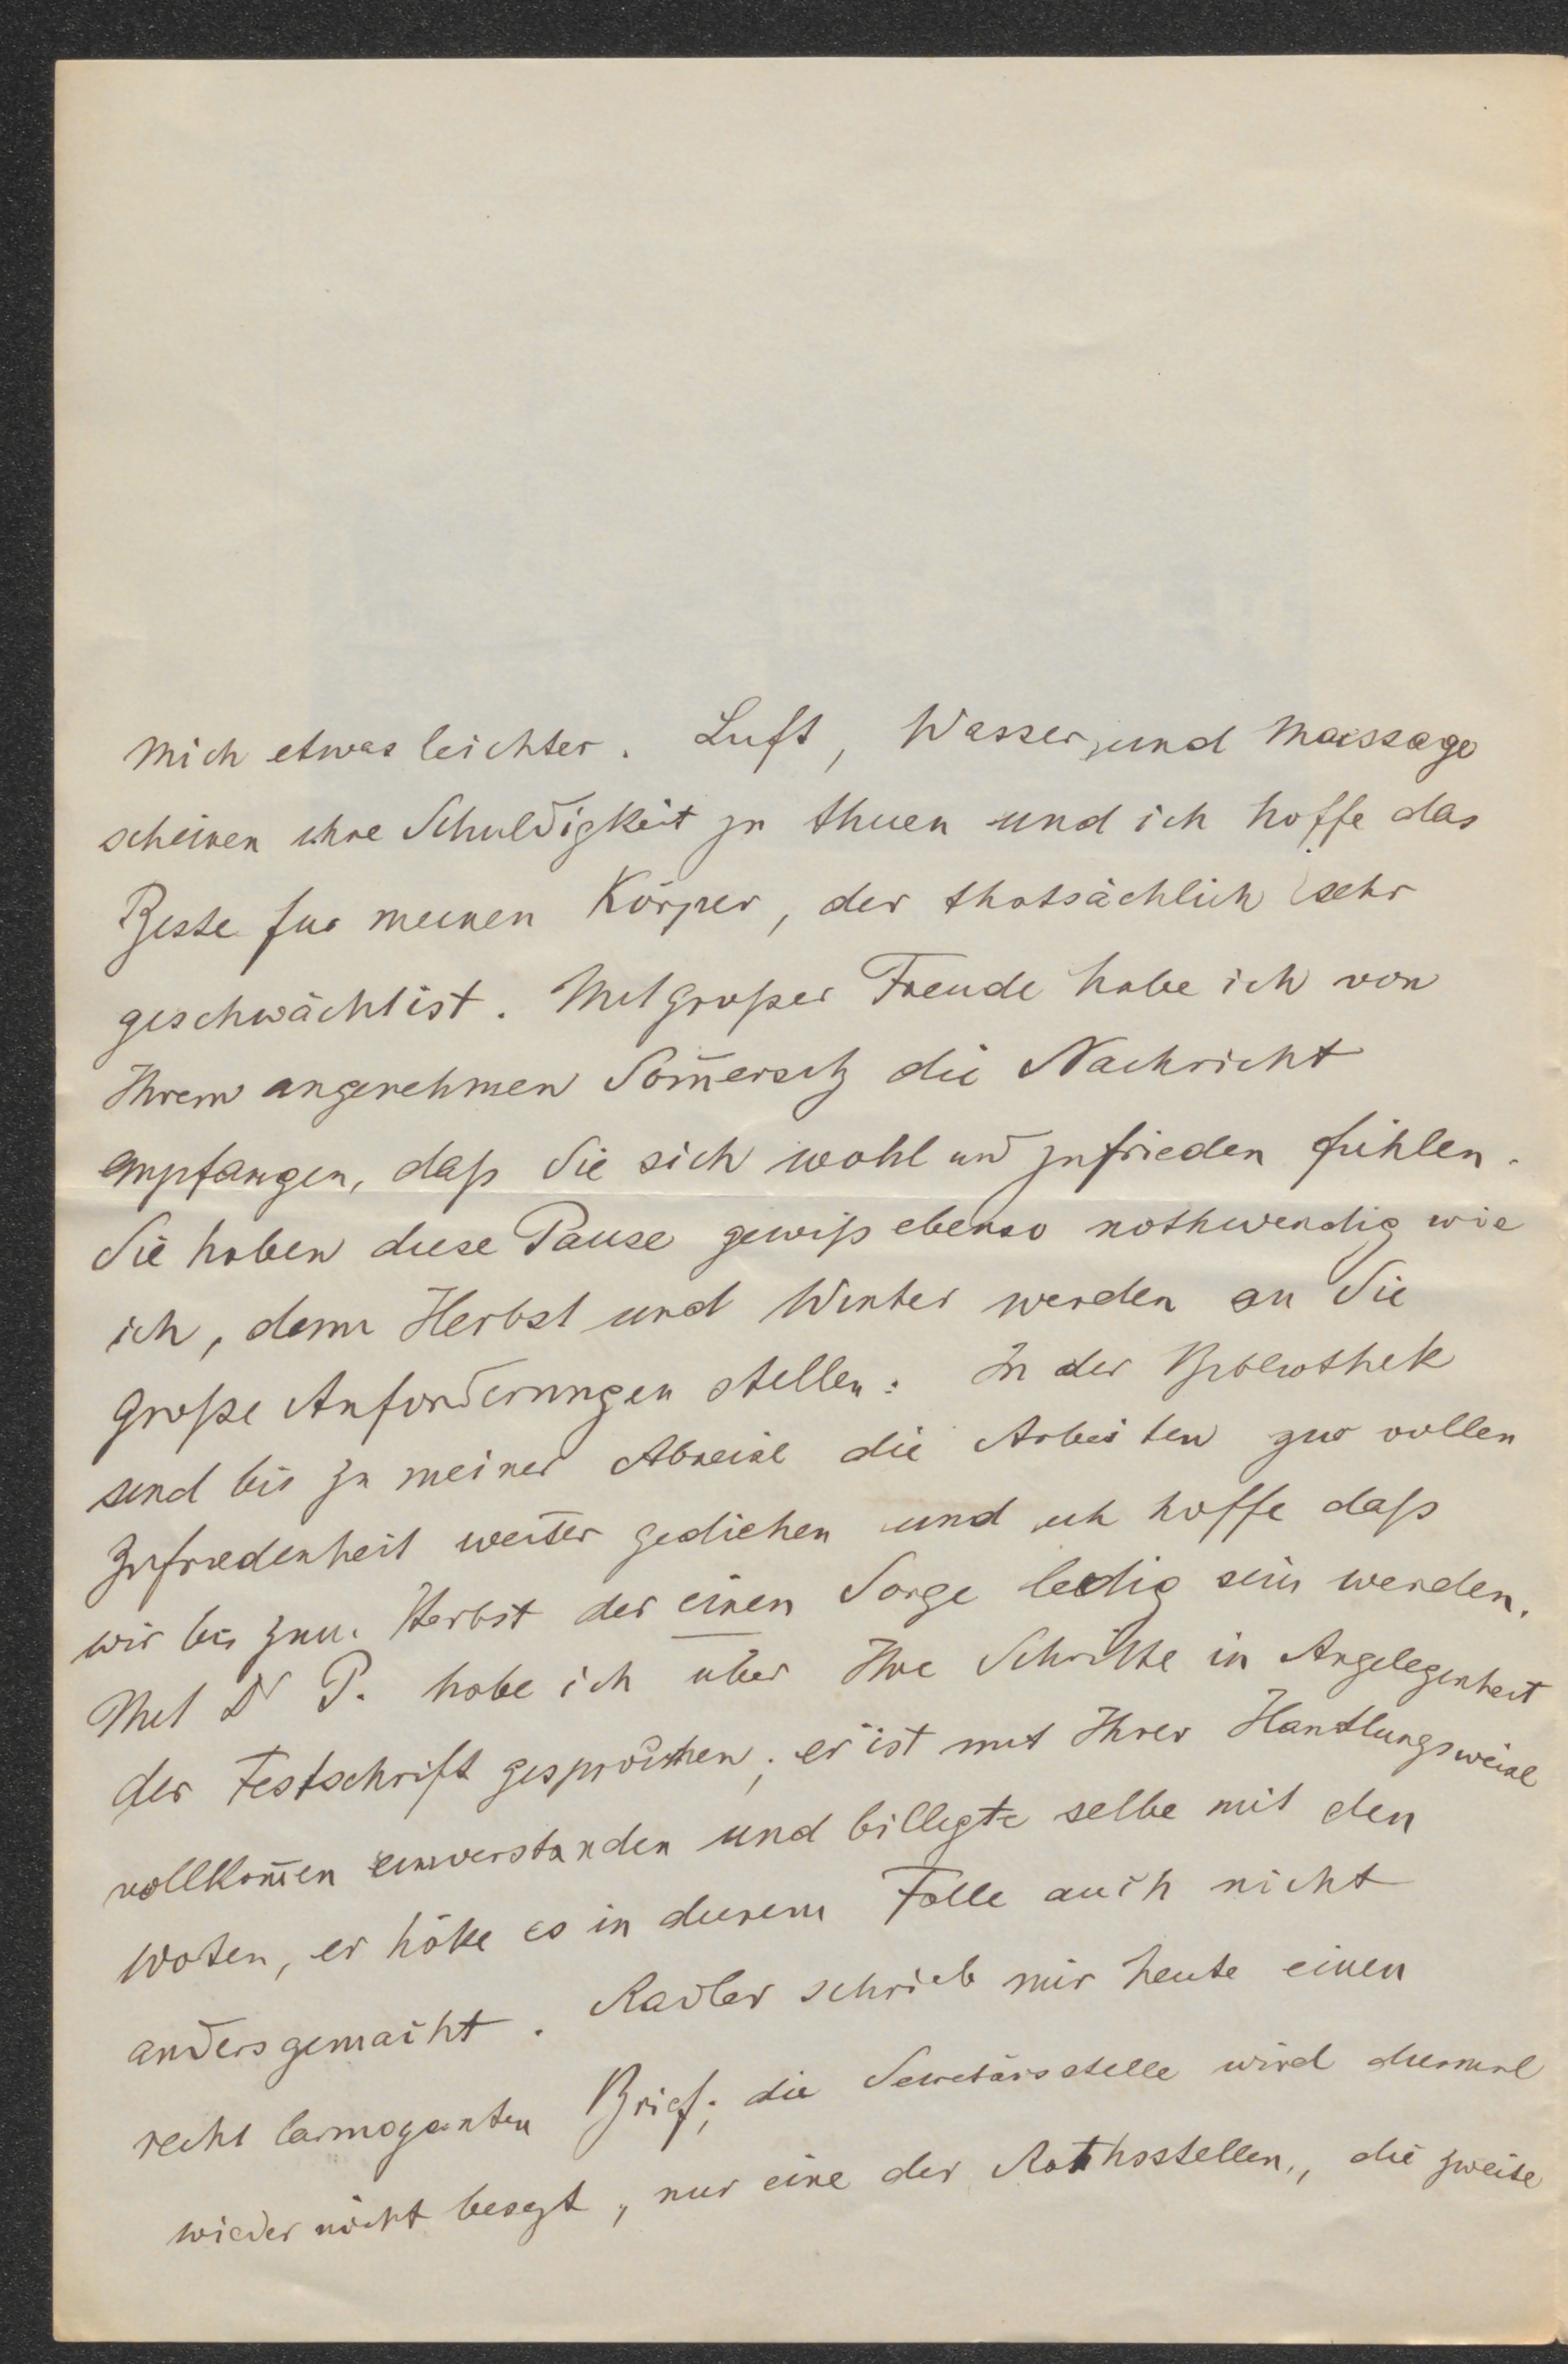 mich etwas leichter. Luft, Wasser, und Massage
scheinen ihre Schuldigkeit zu thuen und ich hoffe das
Beste fur meinen Körper, der thatsächlich sehr
geschwächt ist. Mit großer Freude habe ich von
Ihrem angenehmen Som̅ersitz die Nachricht
empfangen, daß Sie sich wohl und zufrieden fühlen.
Sie haben diese Pause gewiß ebenso nothwendig wie
ich, denn Herbst und Winter werden an Sie
große Anforderungen stellen. In der Bibliothek
sind bis zu meiner Abreise die Arbeiten zur vollen
Zufriedenheit weiter gediehen und ich hoffe daß
wir bis zum Herbst der einen Sorge ledig sein werden.
Mit Dr P. habe ich über Ihre Schritte in Angelegenheit
der Festschrift gesprochen; er ist mit Ihrer Handlungsweise
vollkom̅en einverstanden und billigte selbe mit den
Woten, er hätte es in diesem Falle auch nicht
anders gemacht. Radler schrieb mir heute einen
recht larmoyanten Brief; die Secretärsstelle wird diesmal
wieder nicht besezt, nur eine der Rathsstellen, die zweite